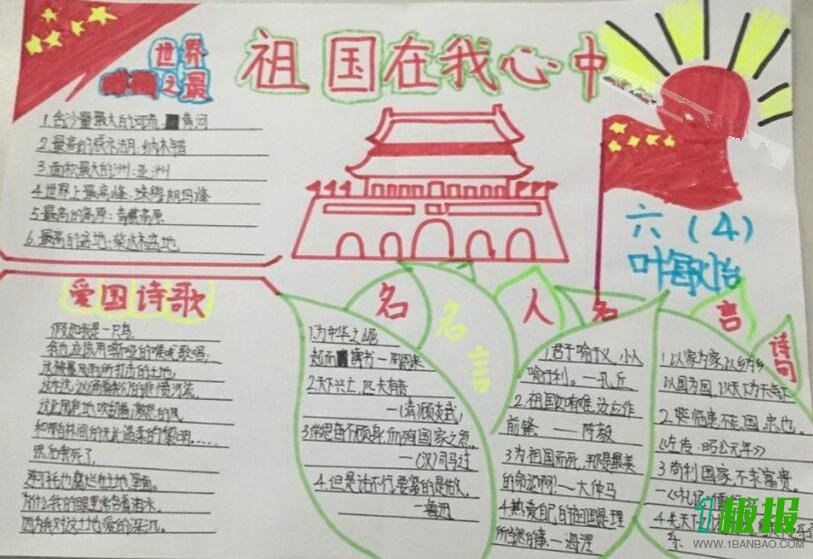 祖国在我心中
世界
之最
1.含沙量最大的河流:黄河
2.最高的咸水湖:纳木错
3.面积最大的洲:亚洲
4.世界上最高峰:珠穆朗玛峰
5.最高的高原:青藏高原
6.最高的盆地:柴达木盆地
六(4)
爱国诗歌
假如我是一只鸟,
我也应该用嘶哑的喉咙歌唱:
这被暴风雨所打击的土地,
这永远汹涌着我们的悲愤河流,
和那来自林间的无比温柔的黎明……
然后我死了,
连羽毛也腐烂在土地里面。
为什么我的眼里常含着泪水,
因为我对这土地爱的深沉。
名名言
1.为中华之崛
起而读书—周恩来
2.天下兴亡,匹夫有责
—(清)顾炎武)
3.常思奋不顾身,而殉国家之急。
—(汉)司马迁
4.但是话不行,要紧的是做。
—鲁迅
人名
1.君子喻于义,小人
喻于利。—孔丘
2.祖国如有难,汝应作
前锋 —陈毅
3.为祖国而死,那是最美
的命运啊!—大仲马
4.热爱自己的祖国是理
所当然的事—海涅
言诗句
1.以家为家,以乡为乡
以国为国,以天下为天下
2.临患不忘国,忠也。
3.苟利国家,不求富贵。
—《礼记·儒行》
1板报
WWW.1BANBAO.COM